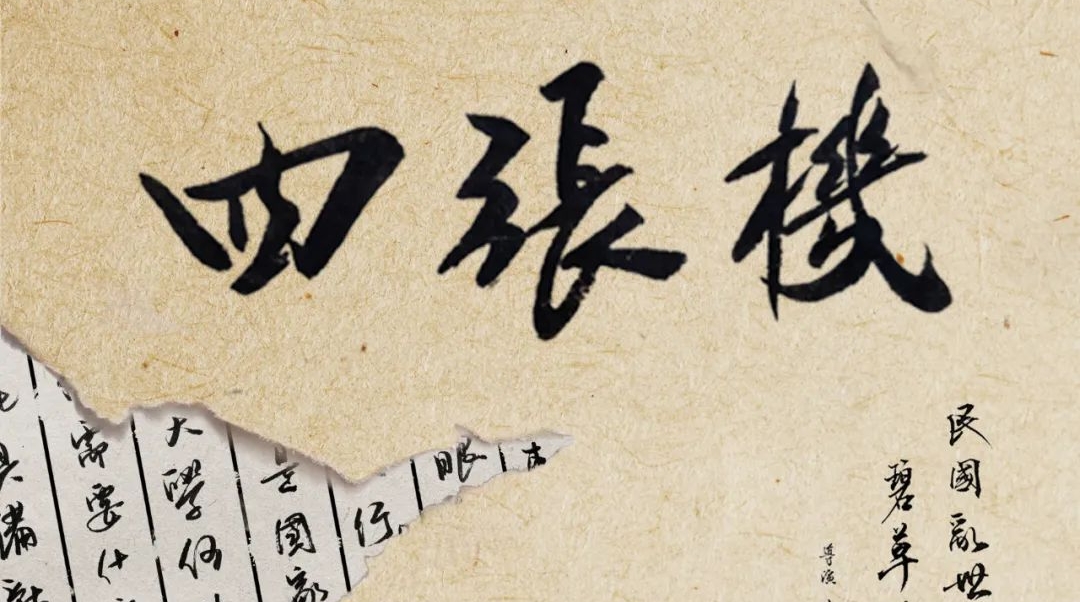 四張機
民國亂世
碧草
導演
眼
行
是國家
大學何
需要什
具備